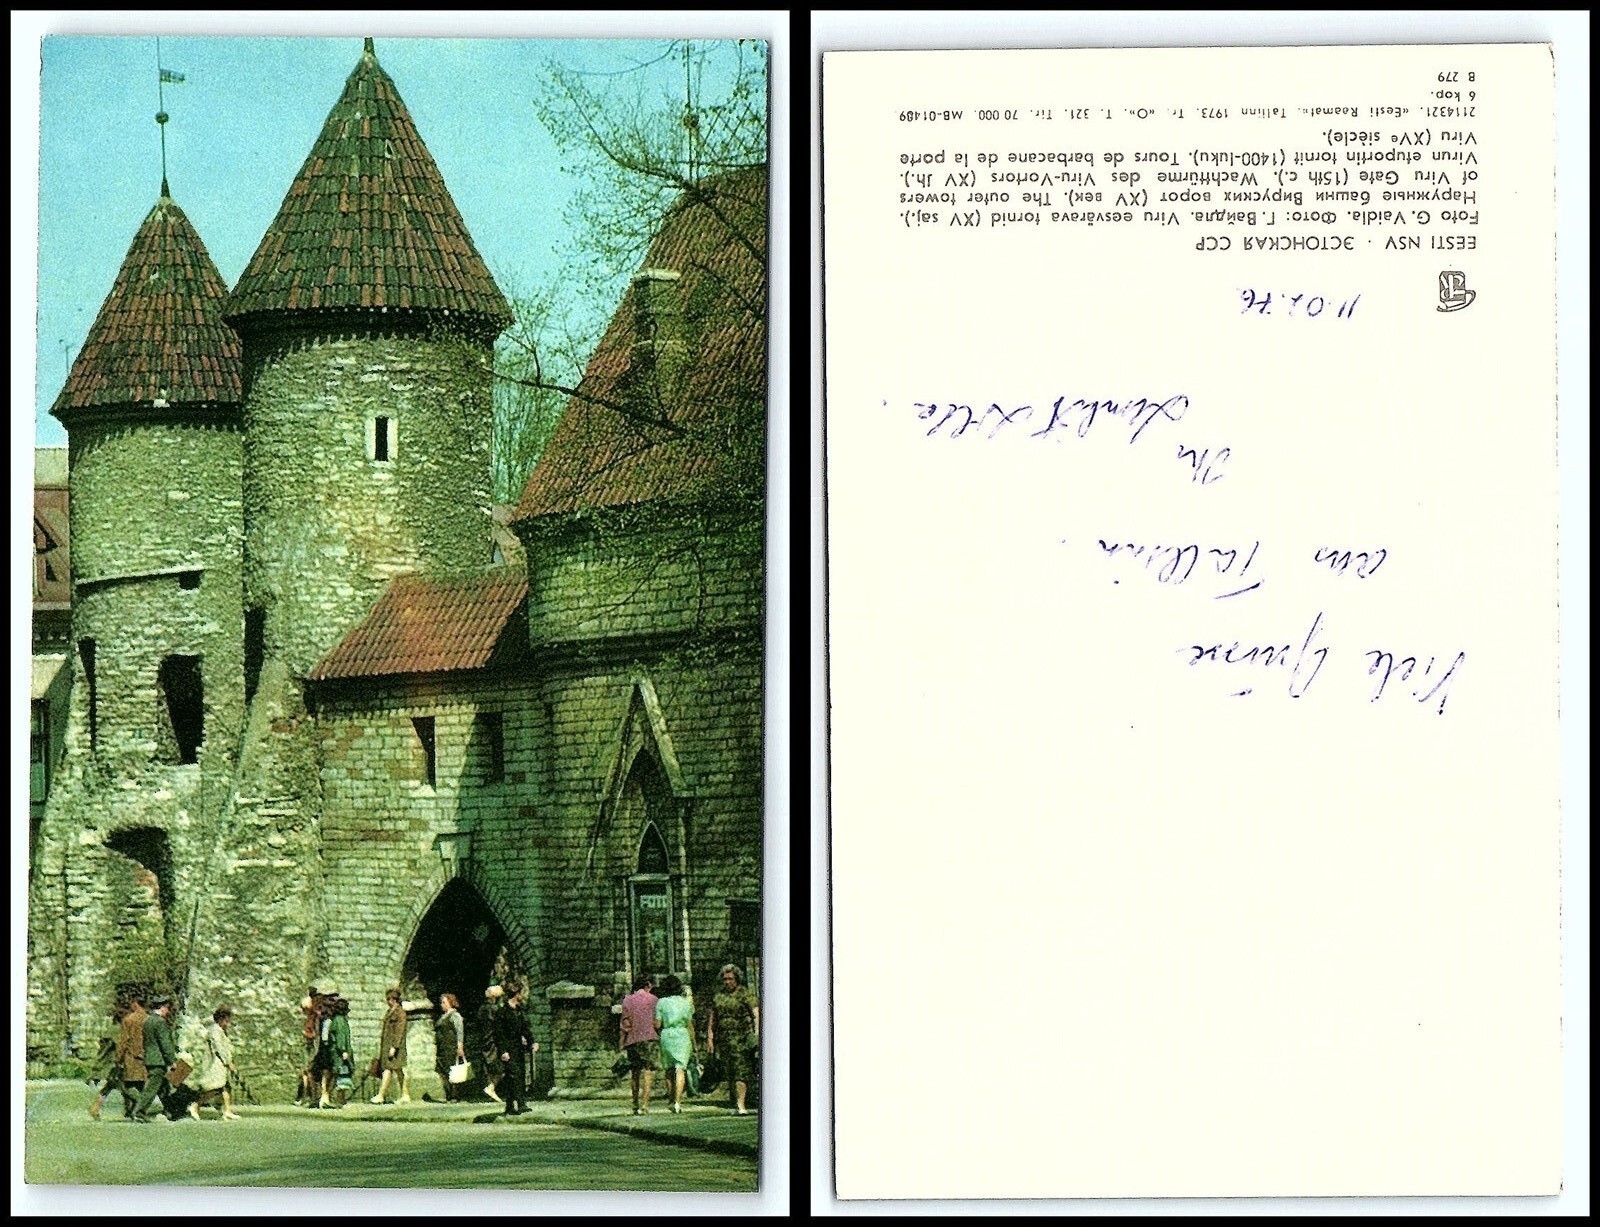 FOTO
EESTI NSV · ЭСТОНСКАЯ ССР
Foto G. Vaidla. Фото: Г. Вайдла. Viru eesvärava tornid (XV saj.).
Наружные башни Вируских ворот (XV век). The outer towers
of Viru Gate (15th c.). Wachttürme des Viru-Vortors (XV Jh.).
Virun etuportin tornit (1400-luku). Tours de barbacane de la porte
Viru (XVe siècle).
2114321. «Eesti Raamat». Tallinn 1973. Tr. «O». T. 321. Tir. 70 000. MB-01489.
6 kop.
B 279
11.02.76
Viele Grüsse
aus Tallinn.
Ihr